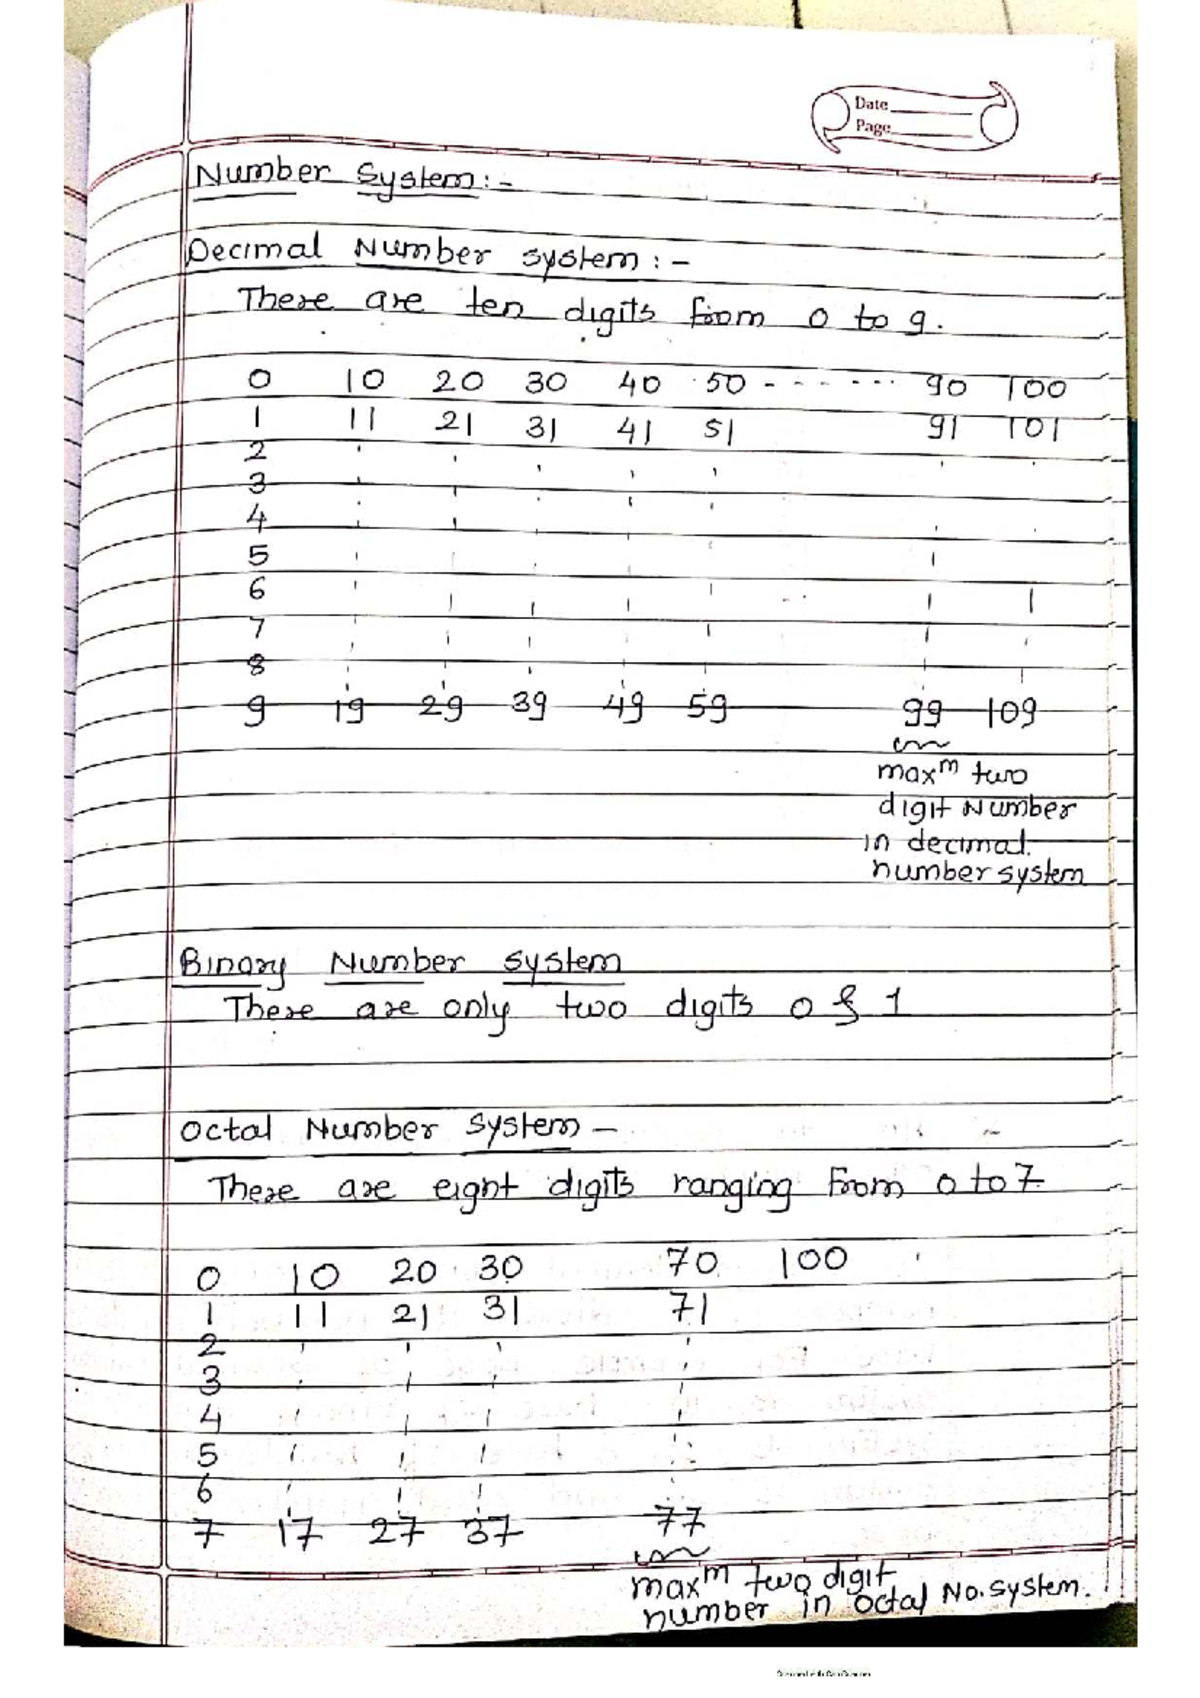 Date
Page
Number System:-
Decimal Number system:-
There are ten digits from 0 to 9.
0 10 20 30 40 50 - - - - - - - 90 100
1 11 21 31 41 51 91 101
2
3
4
5
6
7
8
9 19 29 39 49 59 99 109
maxm two
digit Number
in decimal.
number system
Binary Number System
There are only two digits 0 & 1
Octal Number System -
There are eight digits ranging from 0 to 7
0 10 20 30 70 100
1 11 21 31 71
2
3
4
5
6
7 17 27 37 77
maxm two digit
number in Octal No. system.